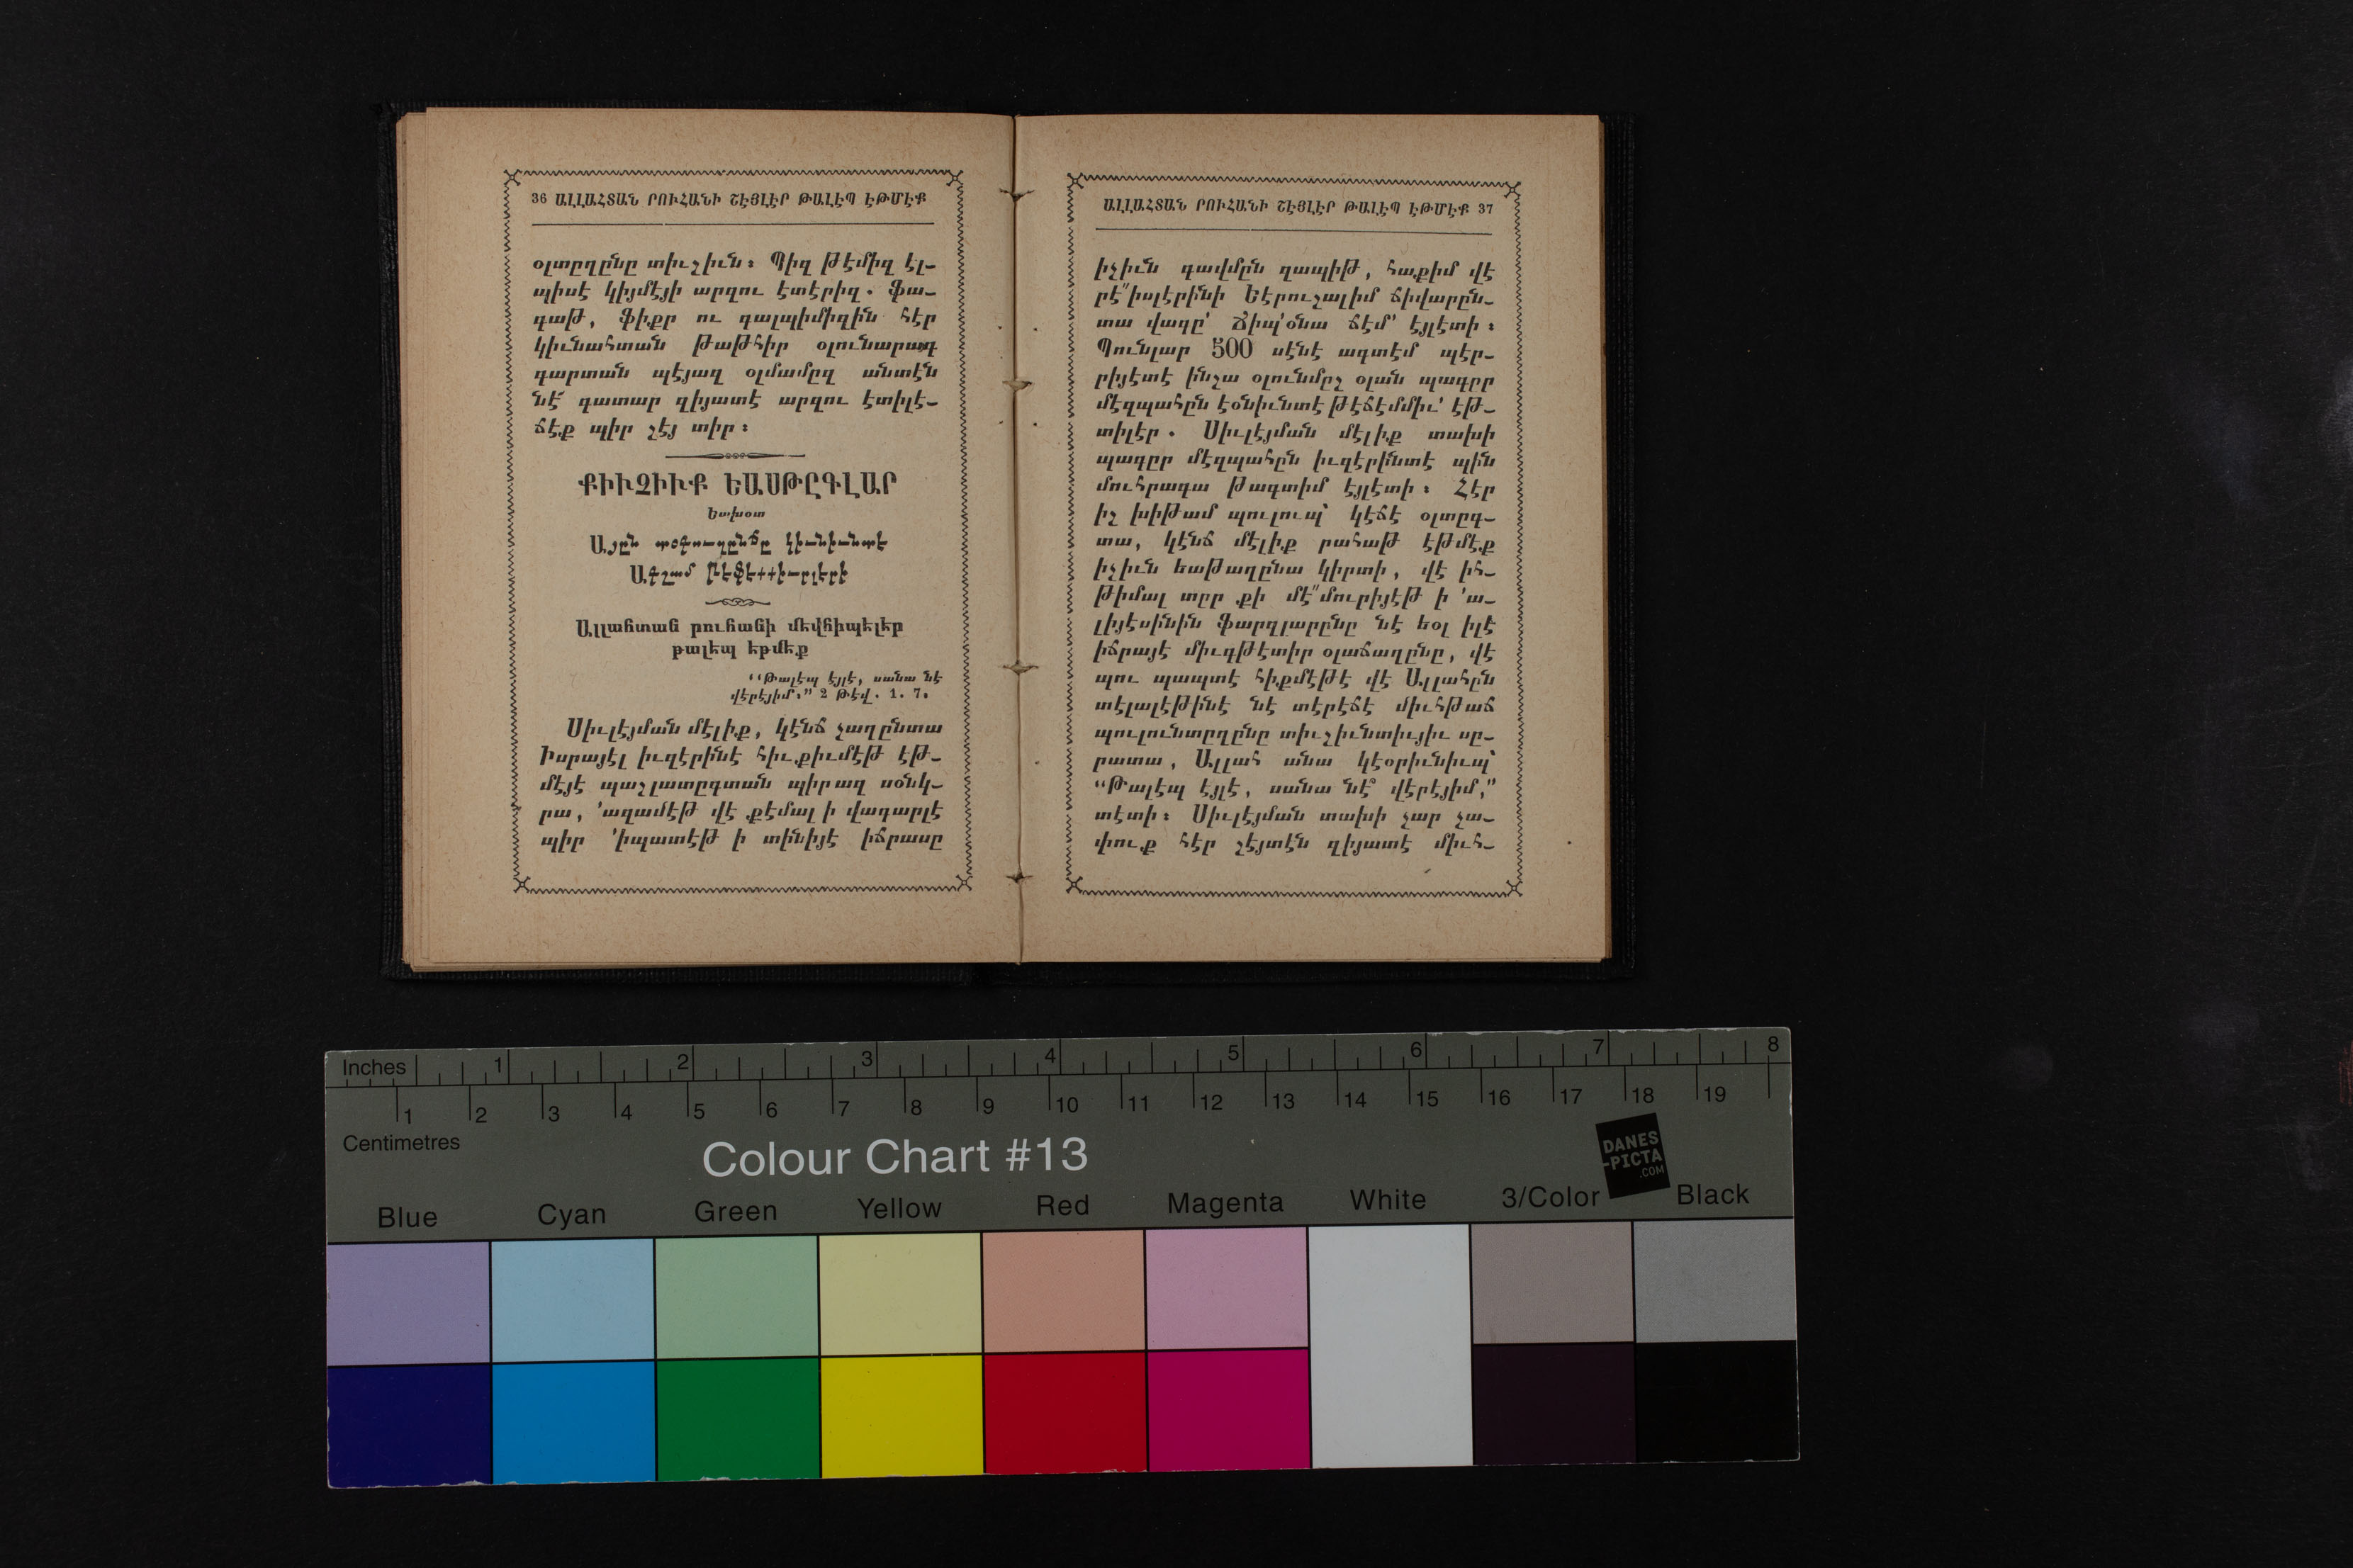 36 ԱԼԼԱՀՏԱՆ ՐՈՒՀԱՆԻ ՇԷՅԼԷՐ ԹԱԼԷՊ ԷԹՄԷՔ
օլտըղընը տիւշիւն։ Պիզ թէմիզ էլ-
պիսէ կիյմէյի արզու էտէրիզ. Ֆա-
գաթ, ֆիքր ու գալպիմիզին հէր
կիւնահտան թաթհիր օլունարագ
գարտան պէյազ օլմամըզ անտէն
նէ՛ գատար զիյատէ արզու էտիլէ-
ճէք պիր շէյ տիր։
ՔԻՒՉԻՒՔ ԵԱՍԹԸԳԼԱՐ
Եախօտ
Այըն օտուղընճը կիւնիւնտէ
Ագշամ թէֆէքքիւրլէրի
Ալլահտան րուհանի մեվհիպելեր
թալեպ եթմեք
“Թալէպ էյլէ, սանա նէ
վէրէյիմ,” 2 Թէվ. 1. 7.
Սիւլէյման մէլիք, կէնճ չաղընտա
Իսրայէլ իւզէրինէ հիւքիւմէթ էթ-
մէյէ պաշլատըգտան պիրազ սօնկ-
րա, ՚ազամէթ վէ քէմալ ի վագարլէ
պիր ՚իպատէթ ի տինիյէ իճրասը
ԱԼԼԱՀՏԱՆ ՐՈՒՀԱՆԻ ՇԷՅԼԷՐ ԹԱԼԷՊ ԷԹՄԷՔ 37
իչիւն գավմըն զապիթ, հաքիմ վէ
րէ՛՛իսլէրինի Եէրուշալիմ ճիվարըն-
տա վագը՚ Ճիպ՚օնա ճէմ՚ էյլէտի։
Պունլար 500 սէնէ ագտէմ պէր-
րիյէտէ ինշա օլունմըշ օլան պագըր
մէզպահըն էօնիւնտէ թէճէմմիւ՚ էթ-
տիլէր. Սիւլէյման մէլիք տախի
պագըր մէզպահըն իւզէրինտէ պին
մուհրագա թագտիմ էյլէտի։ Հէր
իշ խիթամ պուլուպ՝ կէճէ օլտըգ-
տա, կէնճ մէլիք րահաթ էթմէք
իչիւն եաթաղընա կիրտի, վէ իհ-
թիմալ տըր քի մէ՛՛մուրիյէթ ի ՚ա-
լիյէսինին ֆարզլարընը նէ եօլ իլէ
իճրայէ միւգթէտիր օլաճաղընը, վէ
պու պապտէ հիքմէթէ վէ Ալլահըն
տէլալէթինէ նէ տէրէճէ միւհթաճ
պուլունտըղընը տիւշիւնտիւյիւ սը-
րատա, Ալլահ անա կէօրիւնիւպ՝
“Թալէպ էյլէ, սանա նէ՞ վէրէյիմ,”
տէտի։ Սիւլէյման տախի չար չա-
փուք հէր շէյտէն զիյատէ միւհ-
Inches 1 2 3 4 5 6 7 8
1 2 3 4 5 6 7 8 9 10 11 12 13 14 15 16 17 18 19
Centimetres
Colour Chart #13
DANES
-PICTA
.COM
Blue Cyan Green Yellow Red Magenta White 3/Color Black